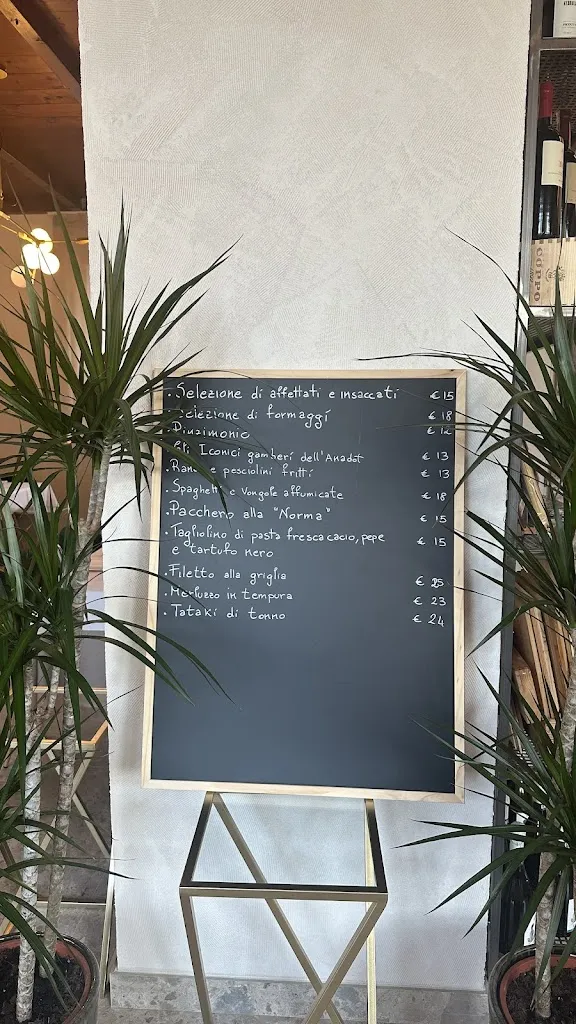 . Selezione di affettati e insaccati € 15
Selezione di formaggi € 18
. Pinzimonio € 12
. Gli Iconici gamberi dell'Anadot € 13
. Rane e pesciolini fritti € 13
. Spaghetti e Vongole affumicate € 18
. Pacchero alla "Norma" € 15
. Tagliolino di pasta fresca cacio, pepe € 15
e tartufo nero
. Filetto alla griglia € 25
. Merluzzo in tempura € 23
. Tataki di tonno € 24
COPPO